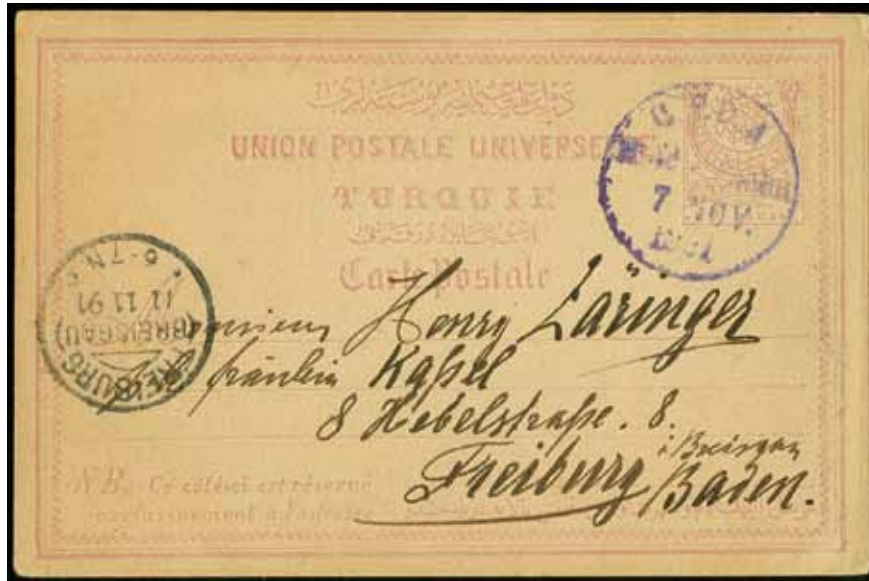 UNION POSTALE UNIVERSELLE
TURQUIE
Carte Postale
7 NOV.
FREIBURG
(BREISGAU)
11 11 91
6-7N
Monsieur Henry Läringer
fräulein Kaßel
8 Hebelstraße. 8.
i Breisgau
Freiburg Baden.
NB. Ce côté ci est réservé
exclusivement à l'adresse